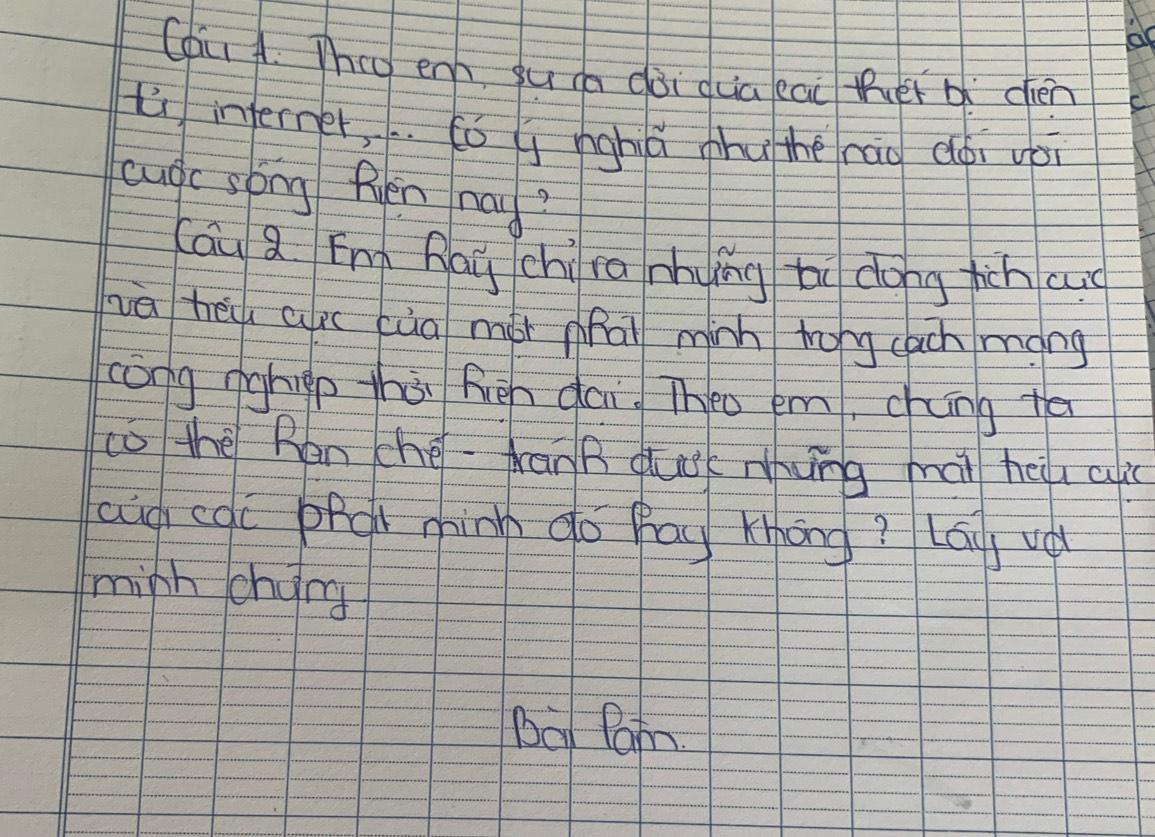 Câu 1. Theo em, sự ra đời của các thiết bị điện
tử, internet,... có ý nghĩa như thế nào đối với
cuộc sống hiện nay?
Câu 2. Em hãy chỉ ra những tác động tích cực
và tiêu cực của một phát minh trong cách mạng
công nghiệp thời hiện đại. Theo em, chúng ta
có thể hạn chế - tránh được những mặt tiêu cực
của các phát minh đó hay không? Lấy vd
minh chứng.
Bài làm.